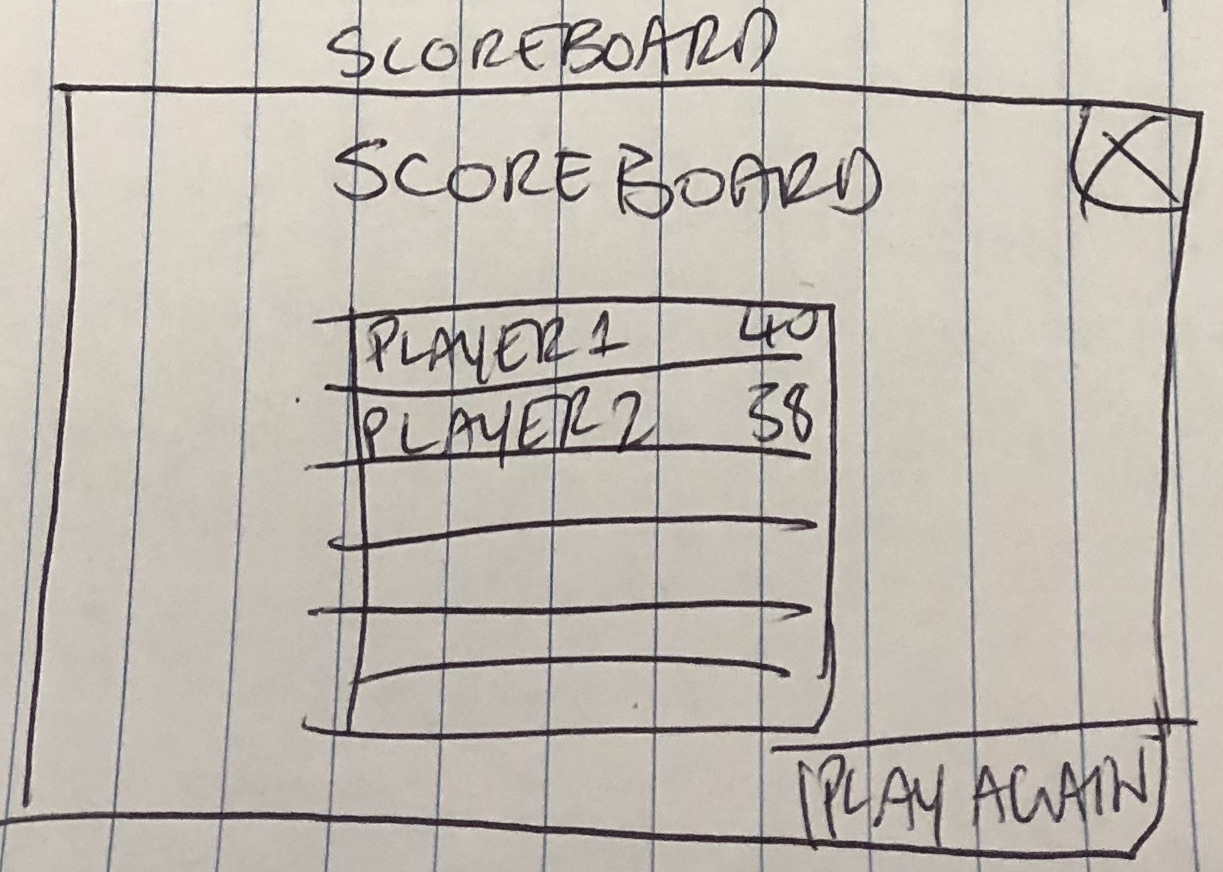 SCOREBOARD
SCOREBOARD
X
PLAYER 1 40
PLAYER 2 38
PLAY AGAIN